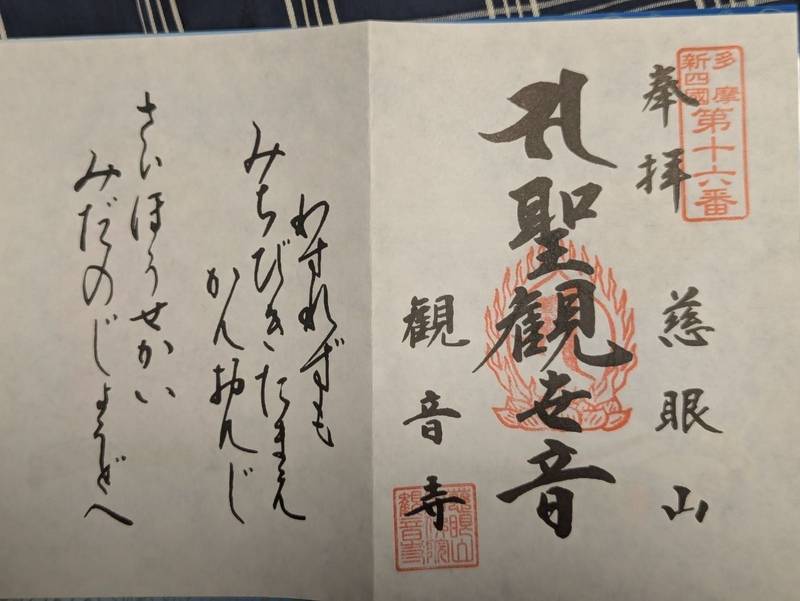 多摩
新四國
第十六番
奉拝
慈眼山
聖観世音
観音寺
わすれずも
みちびきたまえ
かんおんじ
さいほうせかい
みだのじょうどへ